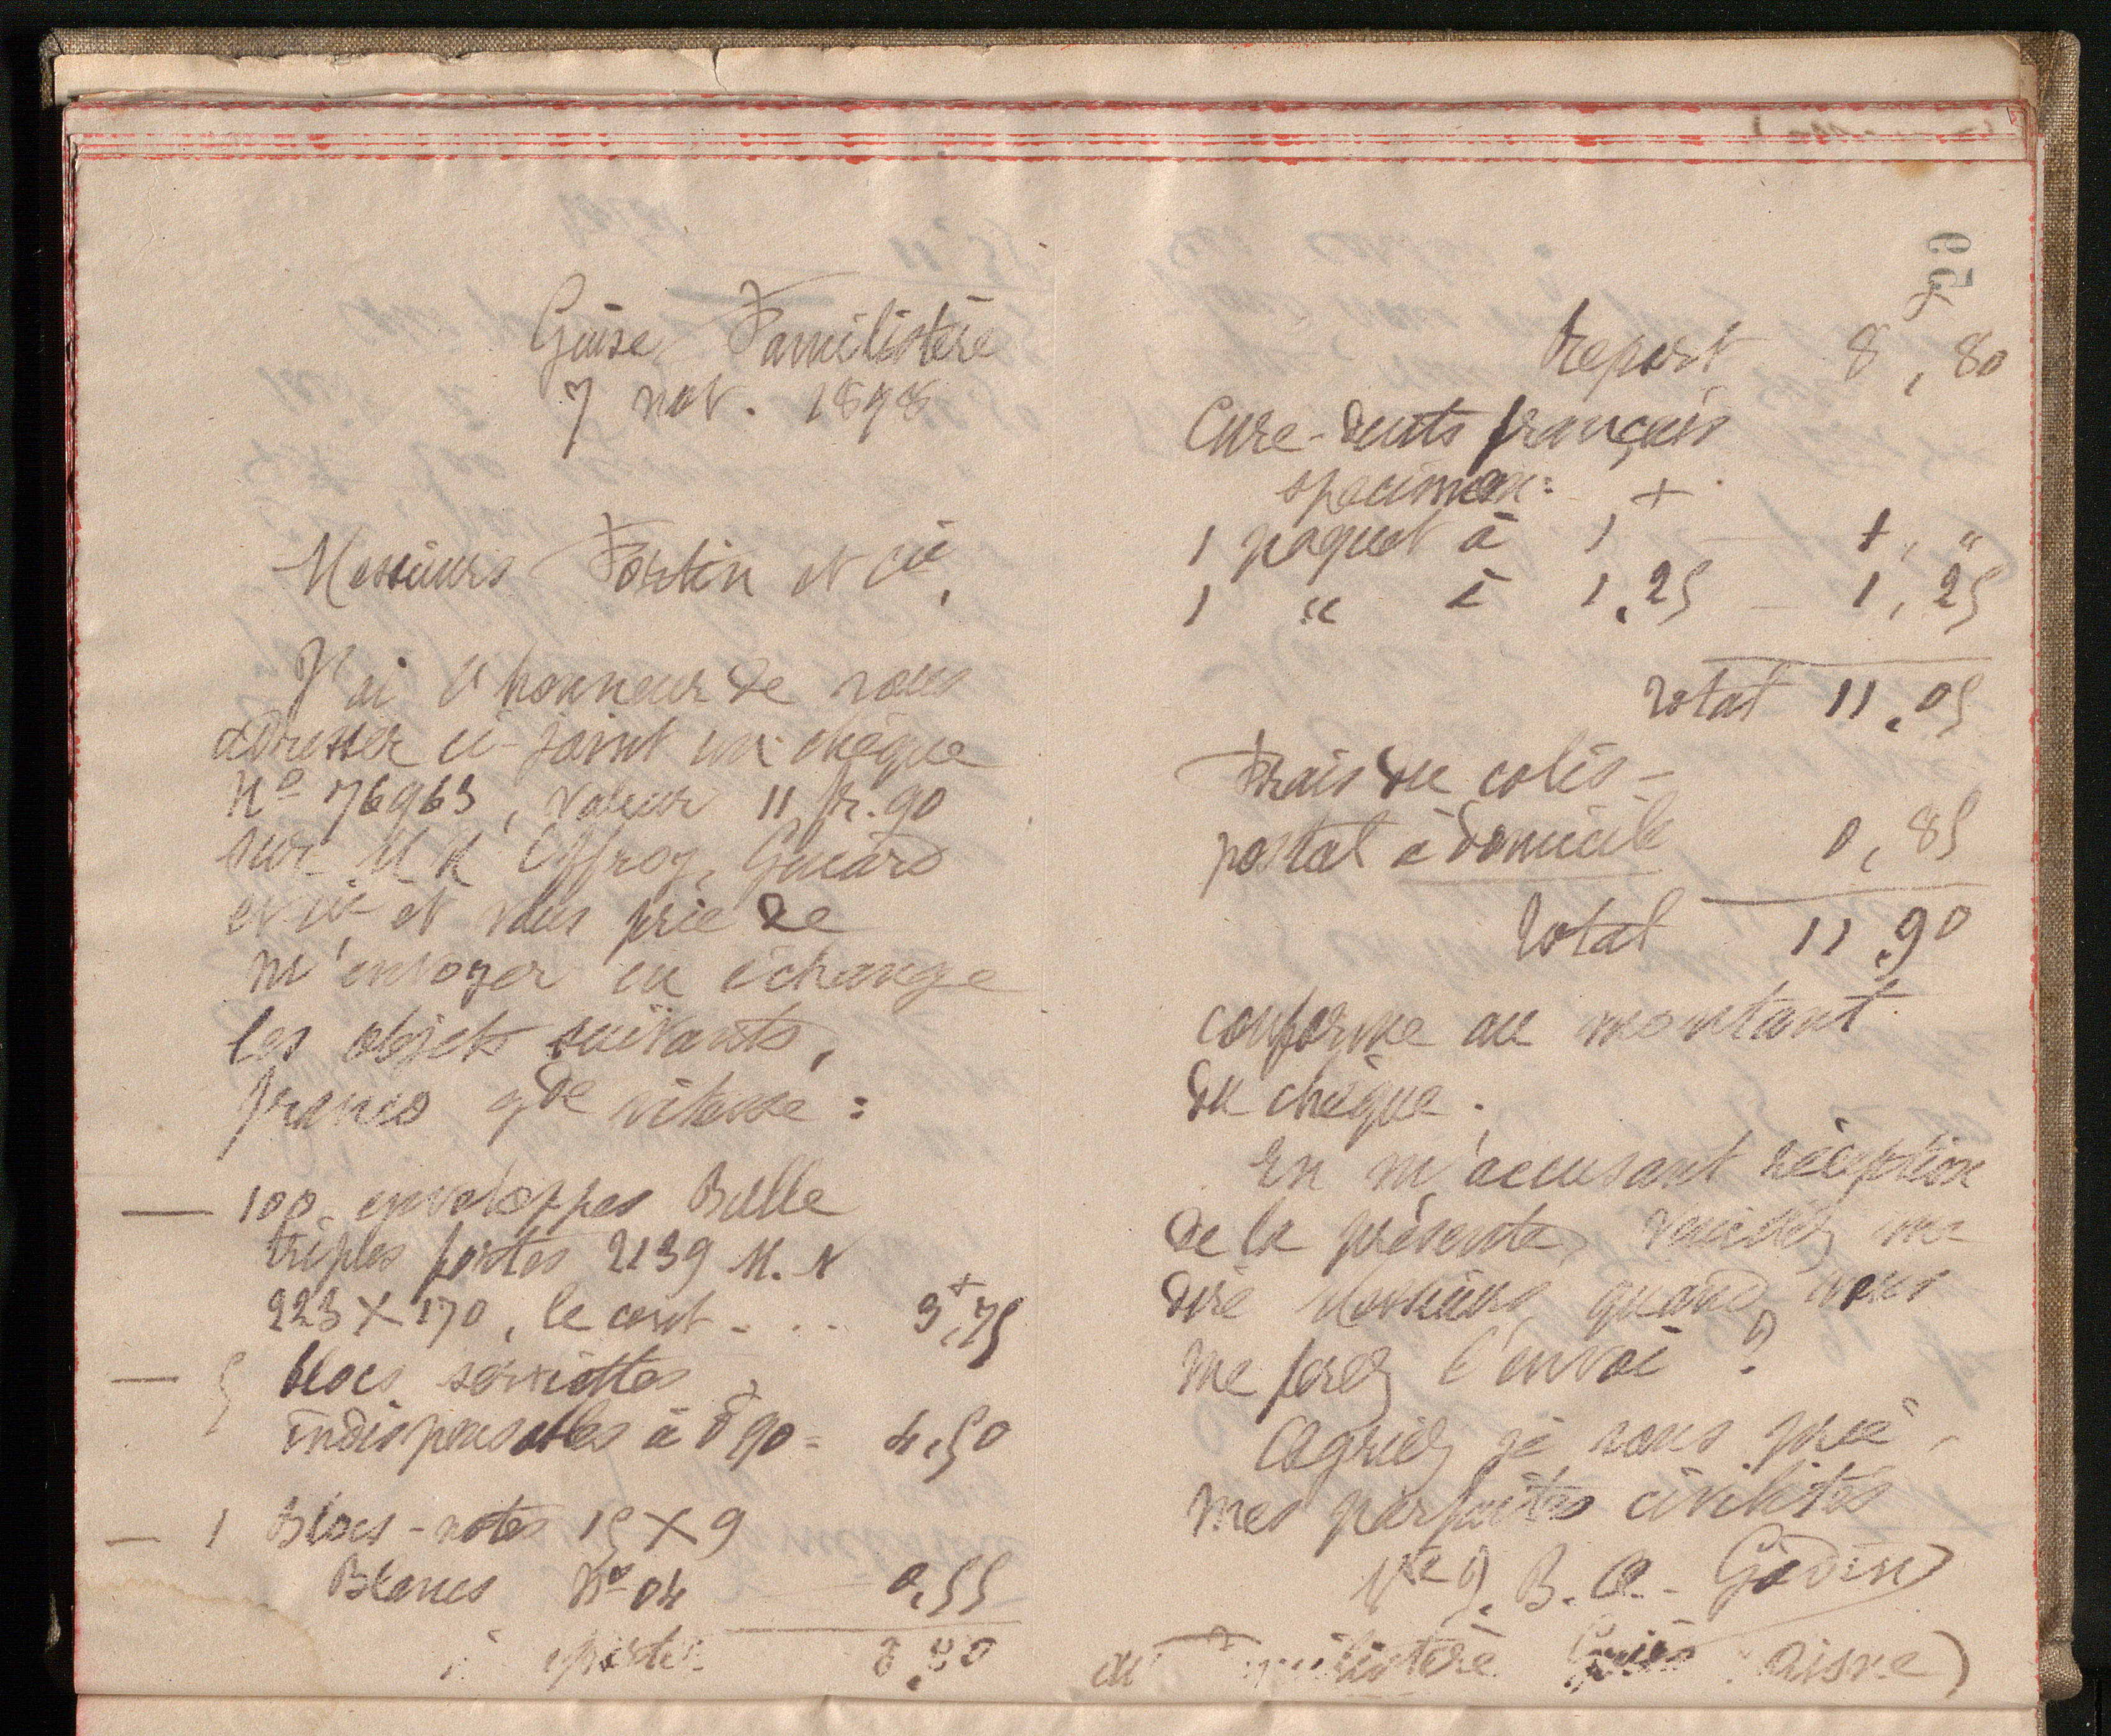 Guise Familistère
7 nov. 1898
Messieurs Fortin et Cie,
J'ai l'honneur de vous
adresser ci-joint un chèque
No 76963, valeur 11 fr. 90
sur MM Offroy, Guiard
et Cie et vous prie de
m'envoyer en échange
les objets suivants,
franco gde vitesse :
— 100 enveloppes Bulle
triples fortes 2139 M. N
223 X 170, le cent - . . 3f,75
— 5 blocs serviettes
indispensables à 0f90 = 4,50
— 1 Blocs-notes 15 X 9
Blancs No 04 0,55
à reporter 8,80
59
Report 8f,80
Cure-dents français
specimen =
1 paquet à 1f — 1 " "
1 " à 1,25 — 1,25
Total 11,05
Frais du colis-
postal à domicile 0,85
Total 11,90
conforme au montant
du chèque.
En m'accusant réception
de la présente, veuillez me
dire Messieurs, quand vous
me ferez l'envoi ?
Agréez je vous prie,
mes parfaites civilités
Vve J. B. A. Godin
au Familistère Guise Aisne)